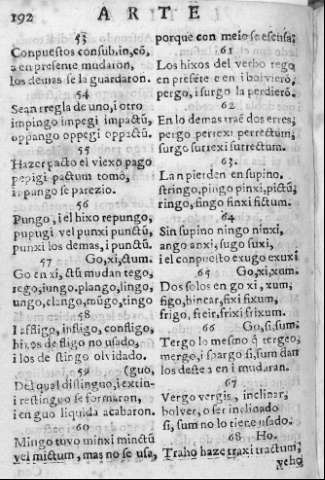 192 ARTE
53
Conpuestos consub,in,cõ,
a en presente mudaron,
los demas se la guardaron.
54
Sean rregla de uno, i otro
impingo impegi impactũ,
oppango oppegi oppactũ.
55
Hazer pacto el viexo pago
pepigi pactum tomó,
a pungo se parezio.
56
Pungo, i el hixo repungo,
pupugi vel punxi punctũ,
punxi los demas, i punctũ.
57 Go, xi, ctum.
Go en xi, ctũ mudan tego,
rego, iungo, plango, lingo,
ungo, clango, mũgo, tingo
58
I affligo, infligo, confligo,
hixos de fligo no usado,
i los de stingo olvidado.
59 (guo,
Del qual distinguo, i extin-
i restinguo se formaron,
i en guo liquida acabaron.
60
Mingo tuvo minxi minctũ
vel mictum, mas no se usa,
porque con meio se escusa;
61
Los hixos del verbo rego
en presẽte e en i bolviero,
pergo, i surgo la perdierõ.
62
En lo demas traẽ dos erres;
pergo perrexi perrectum;
surgo surrexi surrectum.
63.
La n pierden en supino,
stringo, pingo pinxi, pictũ;
ringo, fingo finxi fictum.
64
Sin supino ningo ninxi,
ango anxi, sugo suxi,
i el conpuesto exugo exuxi
65 Go, xi, xum.
Dos solos en go xi, xum,
figo, hincar, fixi fixum,
frigo, freir, frixi frixum.
66 Go, si, sum.
Tergo lo mesmo q̃ tergeo,
mergo, i spargo si, sum dan
los deste a en i mudaran.
67
Vergo vergis, inclinar,
bolver, o ser inclinado
si, sum no lo tiene usado.
68 Ho.
Traho haze traxi tractum;
veho